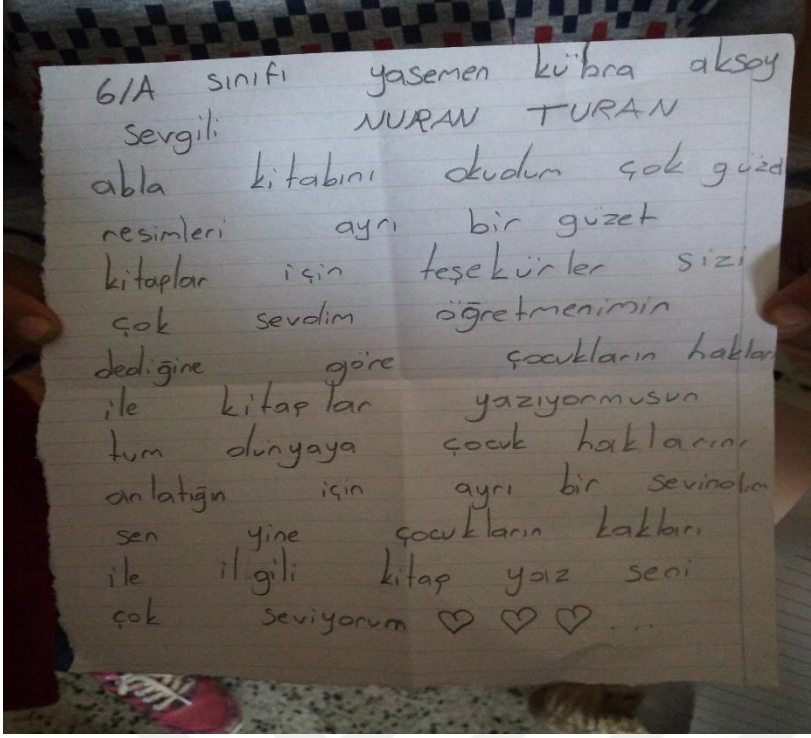 6/A sınıfı yasemen kübra aksoy
Sevgili NURAN TURAN
abla kitabını okudum çok güzel
resimleri ayrı bir güzet
kitaplar için teşekürler sizi
çok sevdim öğretmenimin
dediğine göre çocukların hakları
ile kitaplar yazıyormusun
tum dünyaya çocuk haklarını
anlatığın için ayrı bir sevindim
sen yine çocukların hakları
ile ilgili kitap yaz seni
çok seviyorum ♡ ♡ ♡ ....